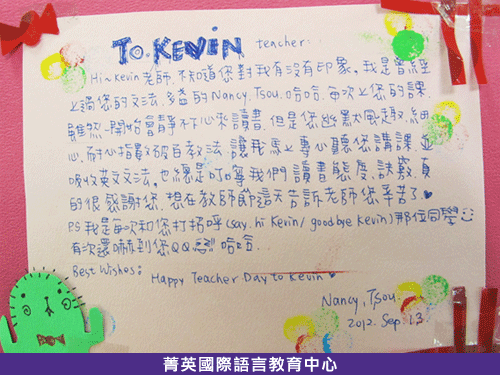 TO.KEVIN teacher.
Hi~Kevin老師,不知道您對我有沒有印象,我是曾經
上過您的文法、多益的Nancy, Tsou.哈哈,每次上您的課,
雖然一開始會靜不下心來讀書,但是您幽默風趣、細
心、耐心指數破百教法,讓我馬上專心聽您講課,並
吸收英文文法,也總是叮嚀我們讀書態度、訣竅,真
的很感謝您,想在教師節這天告訴老師您辛苦了♥
PS 我是每次和您打招呼(say. hi Kevin/ goodbye Kevin)那位同學☺
有次還嚇到您QQ 哈哈.
Best Wishes:
Happy Teacher Day to Kevin ♥
Nancy, Tsou.
2012. Sep. 13.
菁英國際語言教育中心